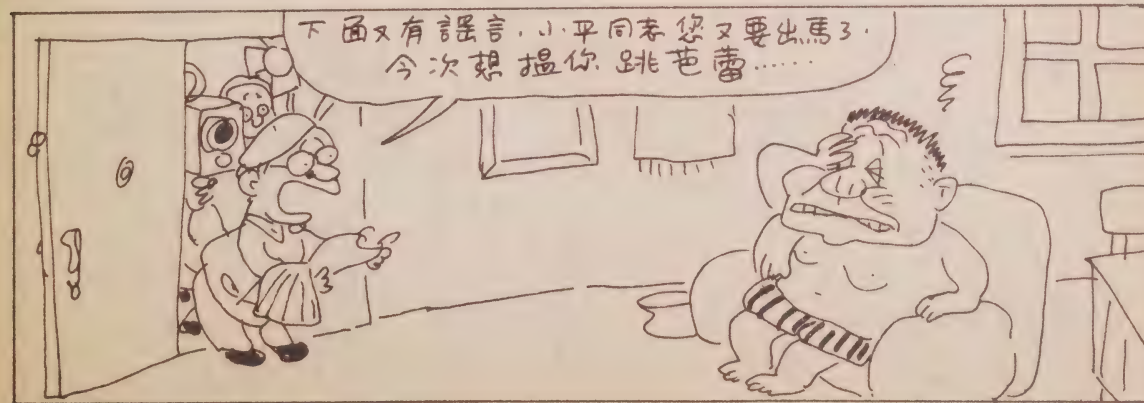 下面又有謠言．小平同志您又要出馬了．
今次想搵你跳芭蕾……